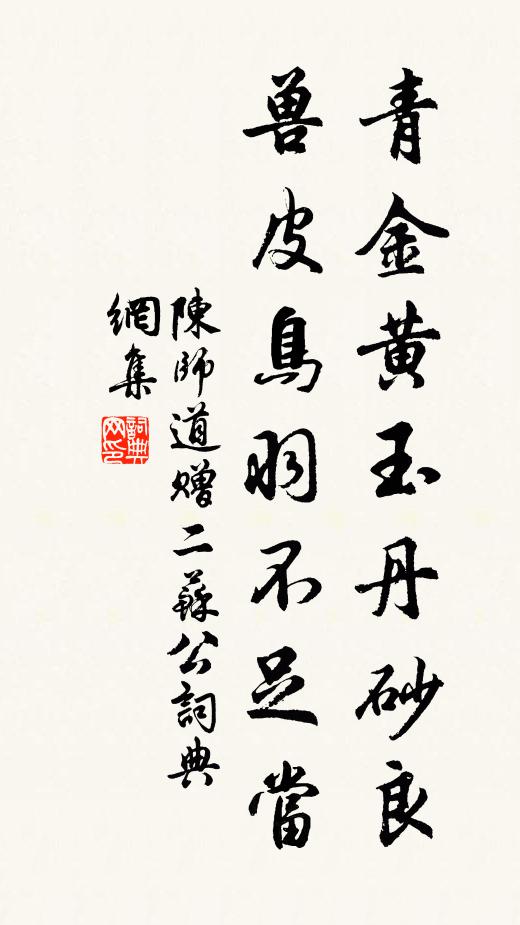 青金黃玉丹砂良
兽皮鳥羽不足當
陳師道贈二蘇公詞典
網集
詞典
网印